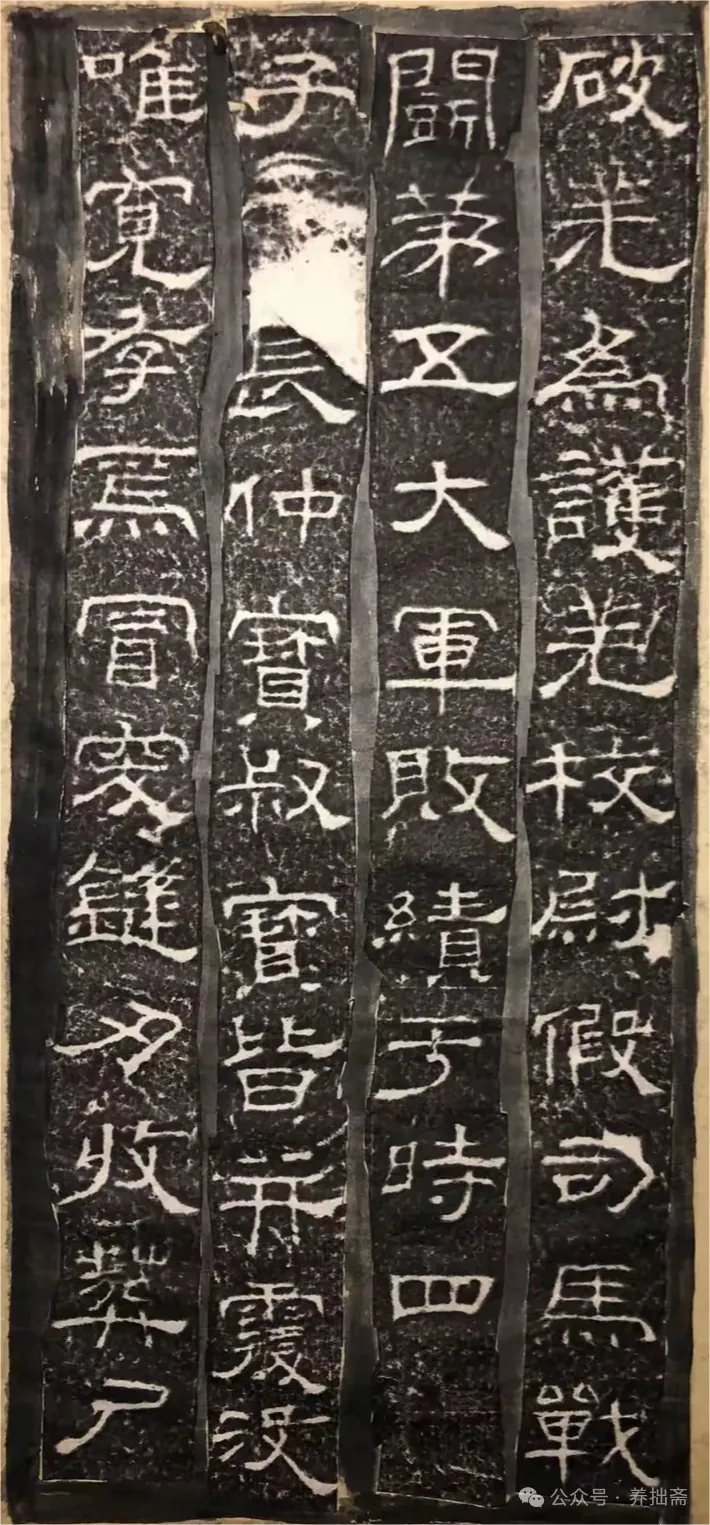 破羌為護羌校尉假司馬戰
鬭第五大軍敗績于時四
子長仲寶叔寶皆并覆没
唯寬存焉冒突鋒刃收葬尸
公众号·养拙斋